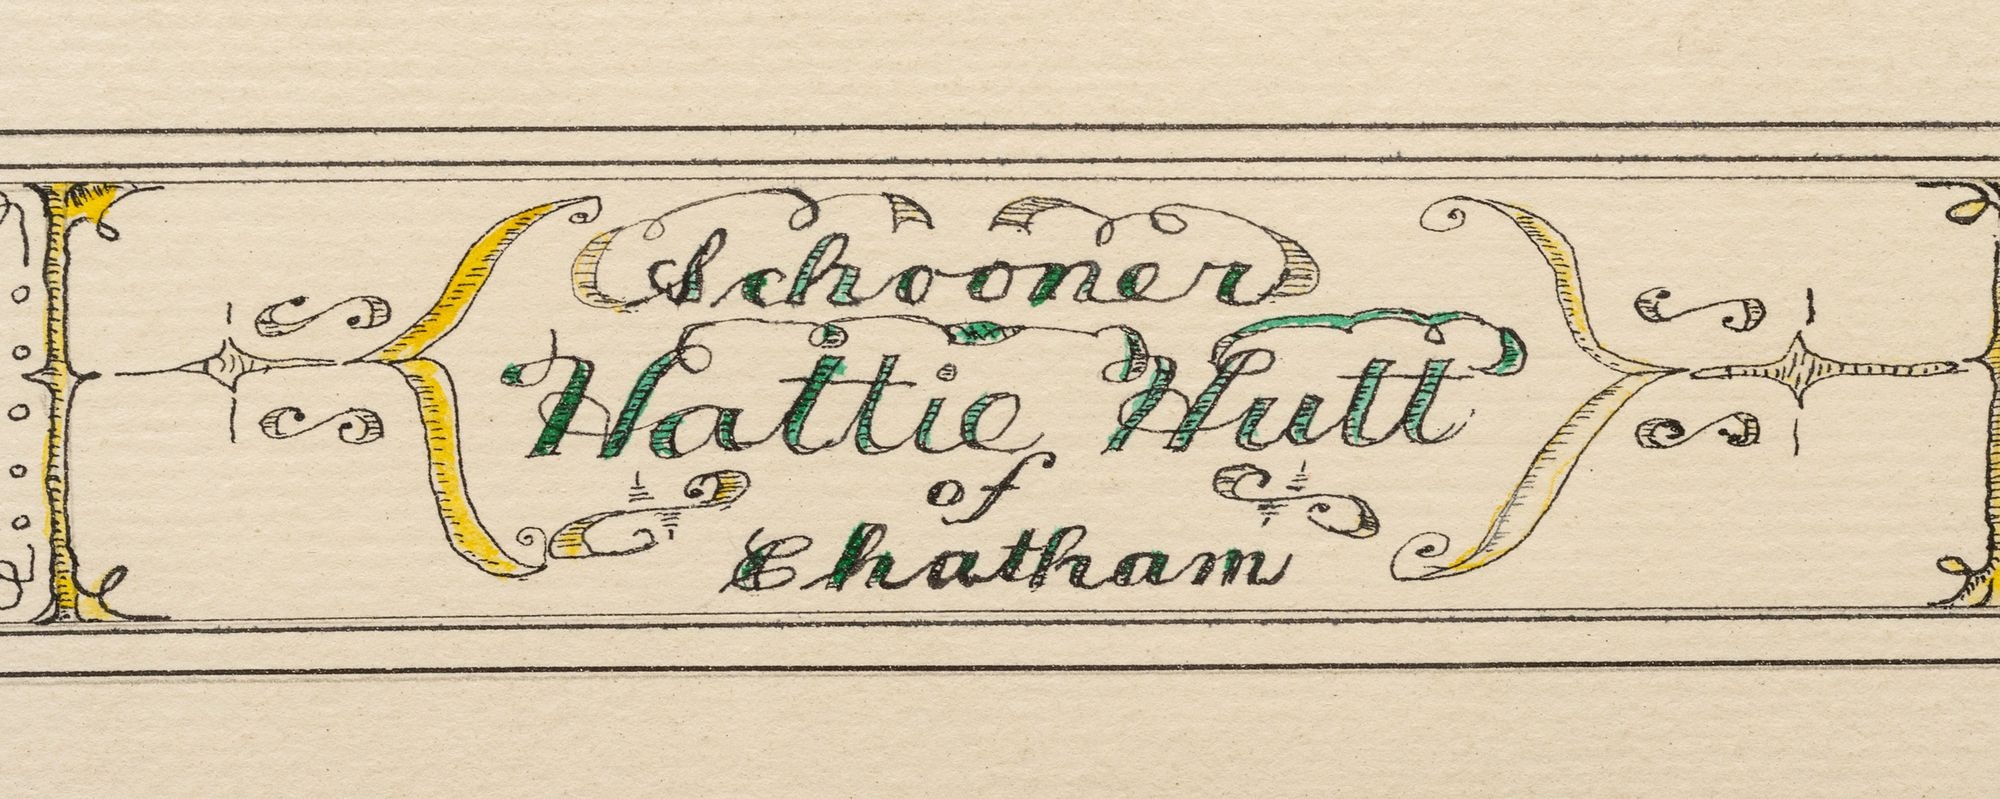 Schooner
Hattie Hutt
of
Chatham